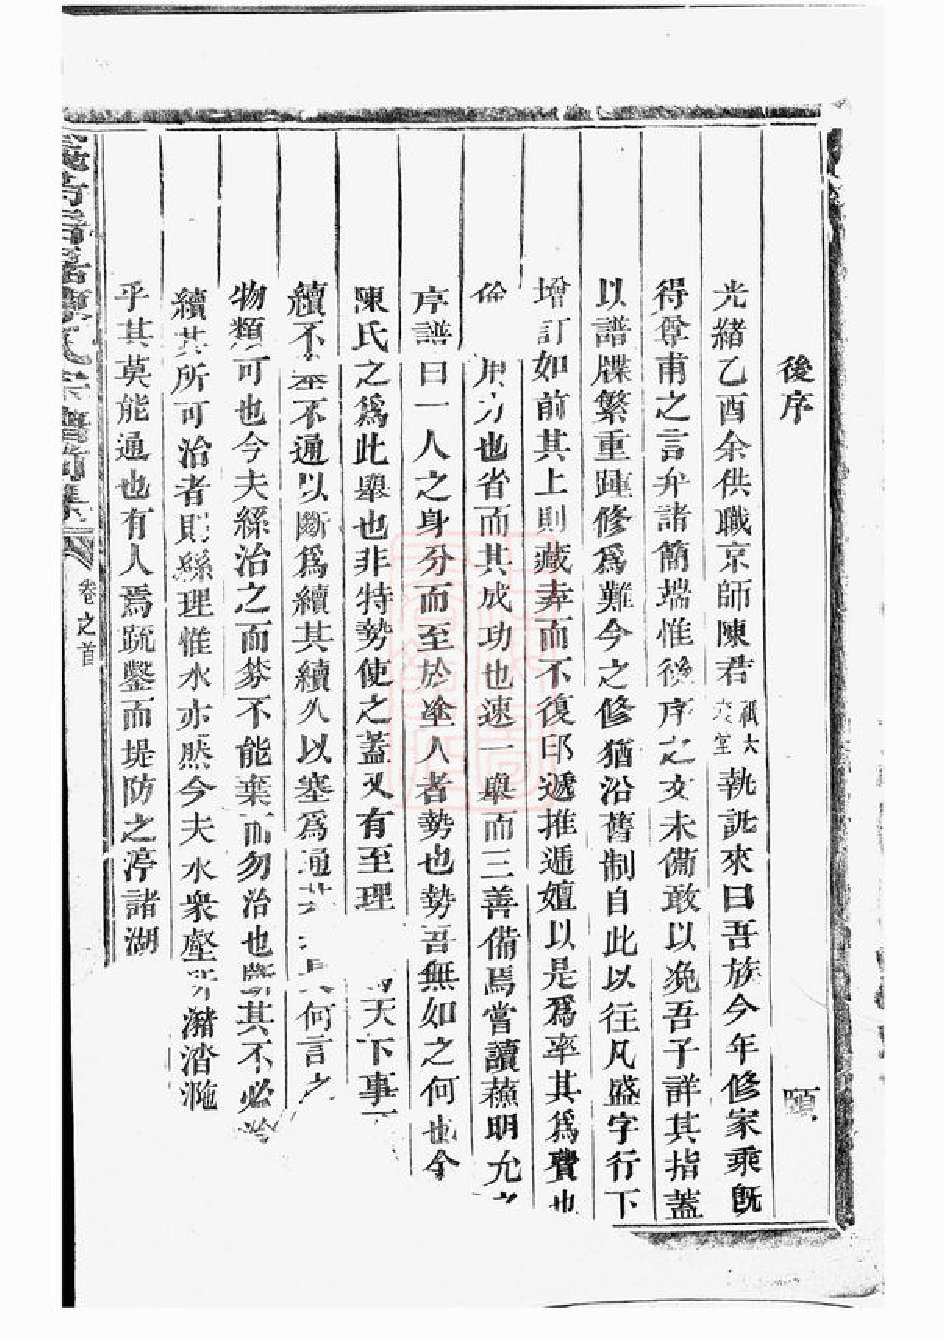 後序
頤
光緒乙酉余供職京師陳君祺大文堂執訛來曰吾族今年修家乘旣
得尊甫之言弁諸簡端惟後序之文未備敢以凂吾子詳其指蓋
以譜牒繁重踵修爲難今之修猶沿舊制自此以往凡盛字行下
增訂如前其上則藏弆而不復印遞推遞嬗以是爲率其爲費也
儉 用力也省而其成功也速一舉而三善備焉嘗讀蘇明允之
序譜曰一人之身分而至於塗人者勢也勢吾無如之何也今
陳氏之爲此舉也非特勢使之蓋又有至理 天下事
續不 不通以斷爲續其續久以塞爲通 其何言之
物類可也今夫絲治之而棼不能棄而勿治也斷其不必
續其所可治者則絲理惟水亦然今夫水衆壑 潴湝
乎其莫能通也有人焉疏鑿而堤防之渟諸湖
陳氏宗譜首集
卷之首